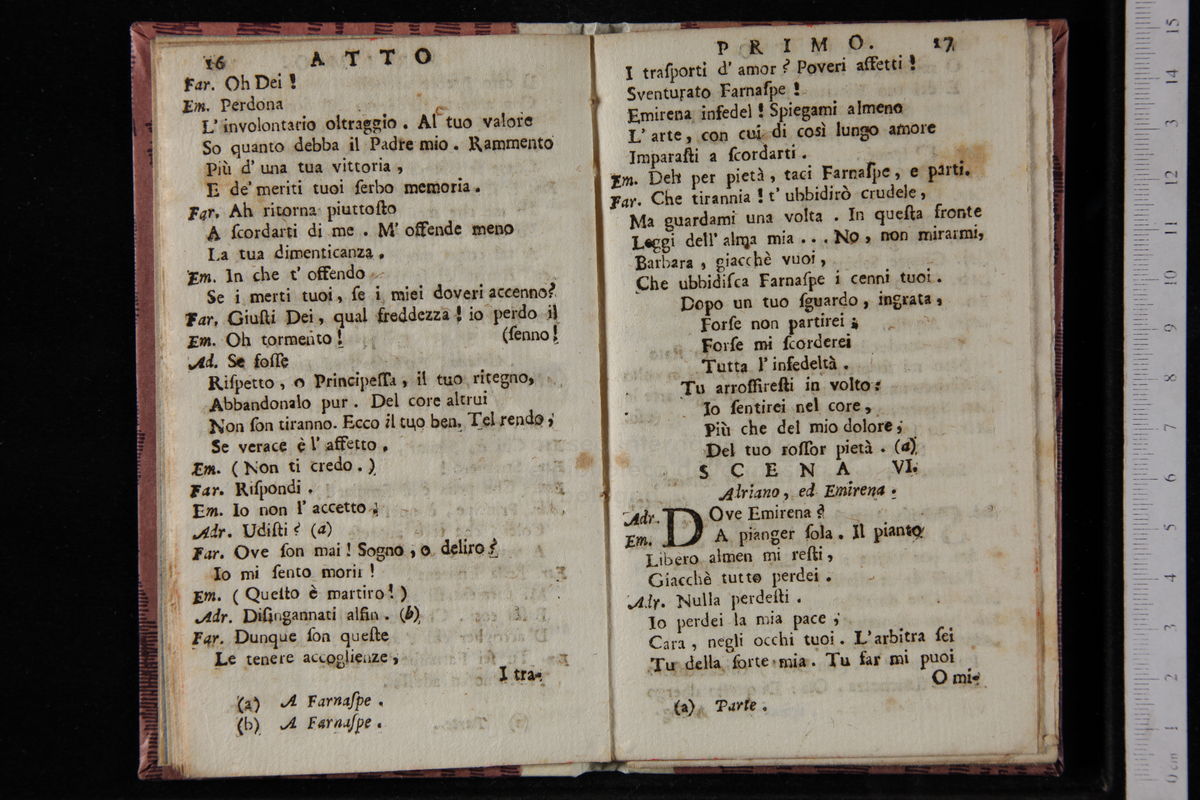 16 ATTO
Far. Oh Dei !
Em. Perdona
L' involontario oltraggio . Al tuo valore
So quanto debba il Padre mio . Rammento
Più d' una tua vittoria ,
E de' meriti tuoi ſerbo memoria .
Far. Ah ritorna piuttoſto
A ſcordarti di me . M' offende meno
La tua dimenticanza .
Em. In che t' offendo
Se i merti tuoi , ſe i miei doveri accenno?
Far. Giuſti Dei , qual freddezza ! io perdo il
Em. Oh tormento ! (ſenno!
Ad. Se foſſe
Riſpetto , o Principeſſa , il tuo ritegno,
Abbandonalo pur . Del core altrui
Non ſon tiranno. Ecco il tuo ben. Tel rendo ;
Se verace è l' affetto .
Em. ( Non ti credo . )
Far. Riſpondi .
Em. Io non l' accetto ;
Adr. Udiſti ? (a)
Far. Ove ſon mai ! Sogno , o deliro ?
Io mi ſento morir !
Em. ( Queſto è martiro ! )
Adr. Diſingannati alfin . (b)
Far. Dunque ſon queſte
Le tenere accoglienze ,
I tra-
(a) A Farnaſpe .
(b) A Farnaſpe .
PRIMO. 17
I traſporti d' amor ? Poveri affetti !
Sventurato Farnaſpe !
Emirena infedel ! Spiegami almeno
L' arte , con cui di così lungo amore
Imparaſti a ſcordarti .
Em. Deh per pietà , taci Farnaſpe , e parti.
Far. Che tirannia ! t' ubbidirò crudele ,
Ma guardami una volta . In queſta fronte
Leggi dell' alma mia . . . No , non mirarmi,
Barbara , giacchè vuoi ,
Che ubbidiſca Farnaſpe i cenni tuoi .
Dopo un tuo ſguardo , ingrata ,
Forſe non partirei ;
Forſe mi ſcorderei
Tutta l' infedeltà .
Tu arroſſireſti in volto :
Io ſentirei nel core ,
Più che del mio dolore ;
Del tuo roſſor pietà . (a)
SCENA VI.
Adriano , ed Emirena .
Adr. DOve Emirena ?
Em. A pianger ſola . Il pianto
Libero almen mi reſti ,
Giacchè tutto perdei .
Adr. Nulla perdeſti .
Io perdei la mia pace ;
Cara , negli occhi tuoi . L'arbitra ſei
Tu della ſorte mia . Tu far mi puoi
O mi-
(a) Parte .
15
14
3
12
11
10
9
8
7
6
5
4
3
2
1
0 cm